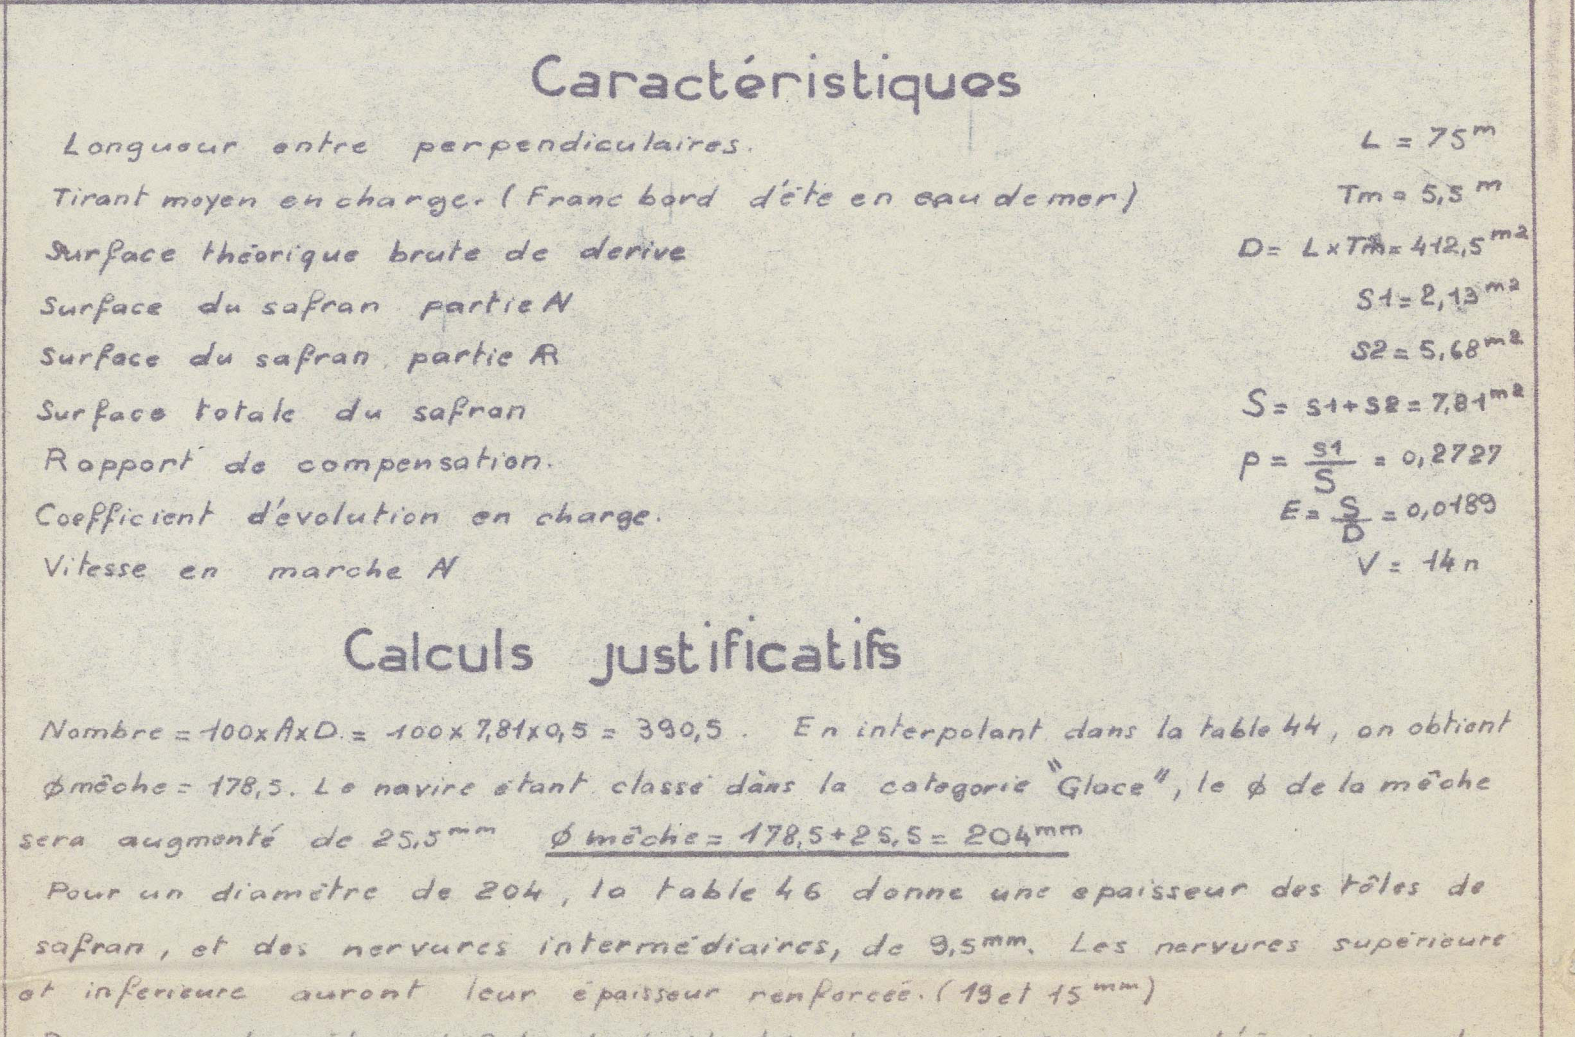 Caractéristiques
Longueur entre perpendiculaires. L = 75 m
Tirant moyen en charge. (Franc bord d'éte en eau de mer) Tm = 5,5 m
Surface théorique brute de derive D = L x Tm = 412,5 m2
Surface du safran partie AV S1 = 2,13 m2
Surface du safran partie AR S2 = 5,68 m2
Surface totale du safran S = S1 + S2 = 7,81 m2
Rapport de compensation. p = S1/S = 0,2727
Coefficient d'évolution en charge. E = S/D = 0,0189
Vitesse en marche AV V = 14 n
Calculs justificatifs
Nombre = 100 x A x D. = 100 x 7,81 x 0,5 = 390,5. En interpolant dans la table 44, on obtient
ø mêche = 178,5. Le navire étant classé dans la categorie "Glace", le ø de la mêche
sera augmenté de 25,5 mm ø mêche = 178,5 + 25,5 = 204 mm
Pour un diamètre de 204, la table 46 donne une epaisseur des tôles de
safran, et des nervures intermédiaires, de 9,5 mm. Les nervures supérieure
et inferieure auront leur épaisseur renforcée. (19 et 15 mm)